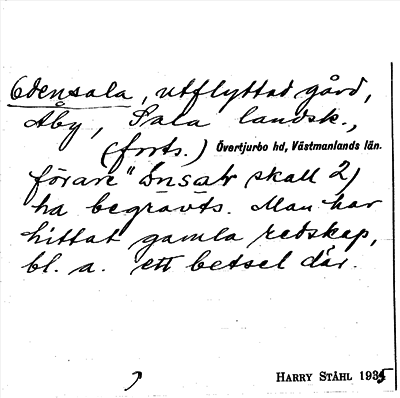 Odensala, utflyttad gård,
Åby, Sala landsk.,
(forts.) Övertjurbo hd, Västmanlands län.
förare" Onsätr skall 2)
ha begravts. Man har
hittat gamla redskap,
bl. a. ett betsel där.
HARRY STÅHL 1935